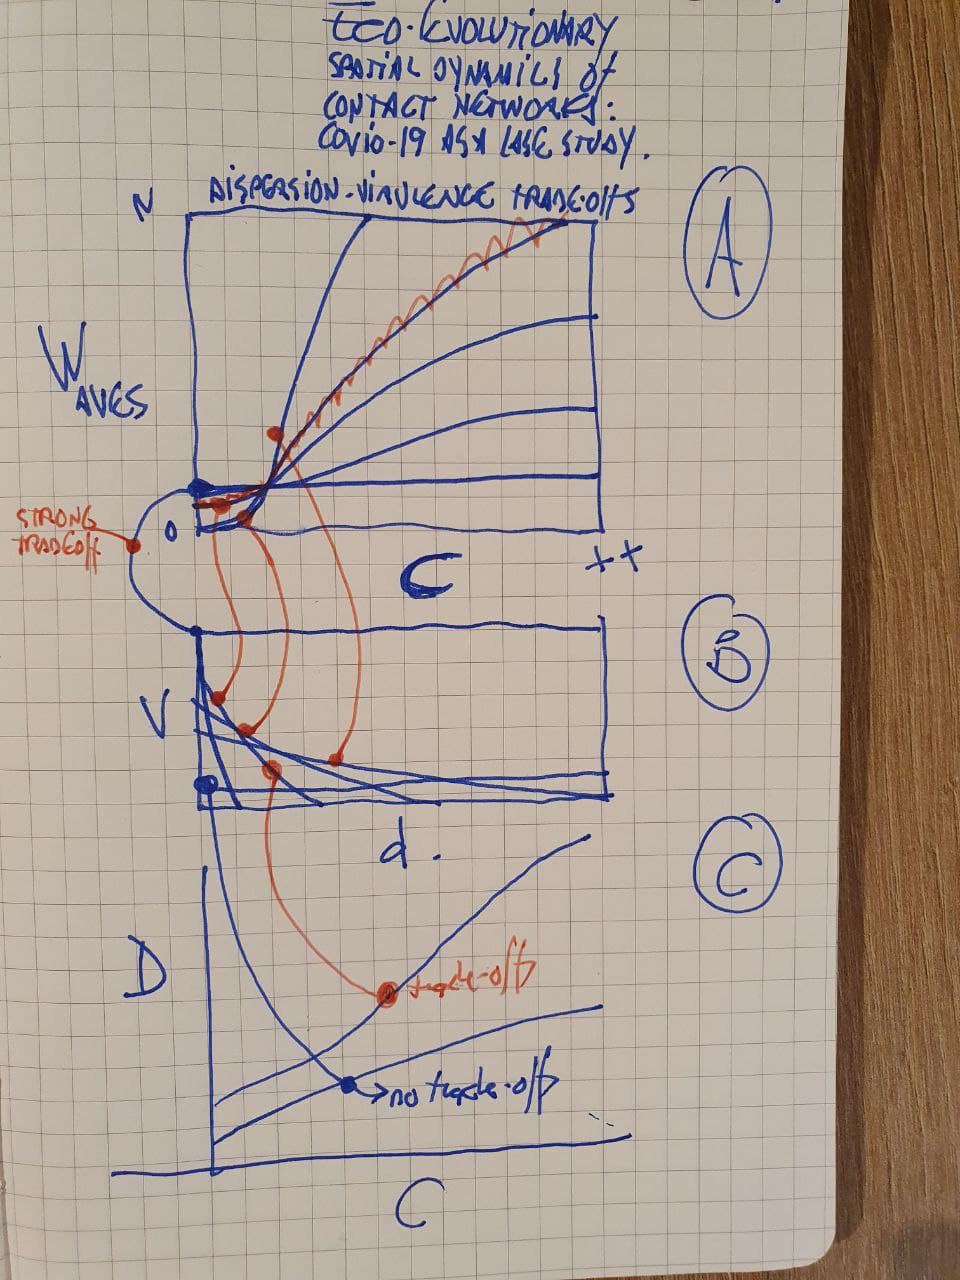 ECO-EVOLUTIONARY
SPATIAL DYNAMICS of
CONTACT NETWORKS:
COVID-19 AS A CASE STUDY.
DISPERSION-VIRULENCE TRADE-OffS
N
A
WAVES
STRONG
TRADEOff
0
C
++
B
V
d.
C
D
trade-off
no trade-off
C